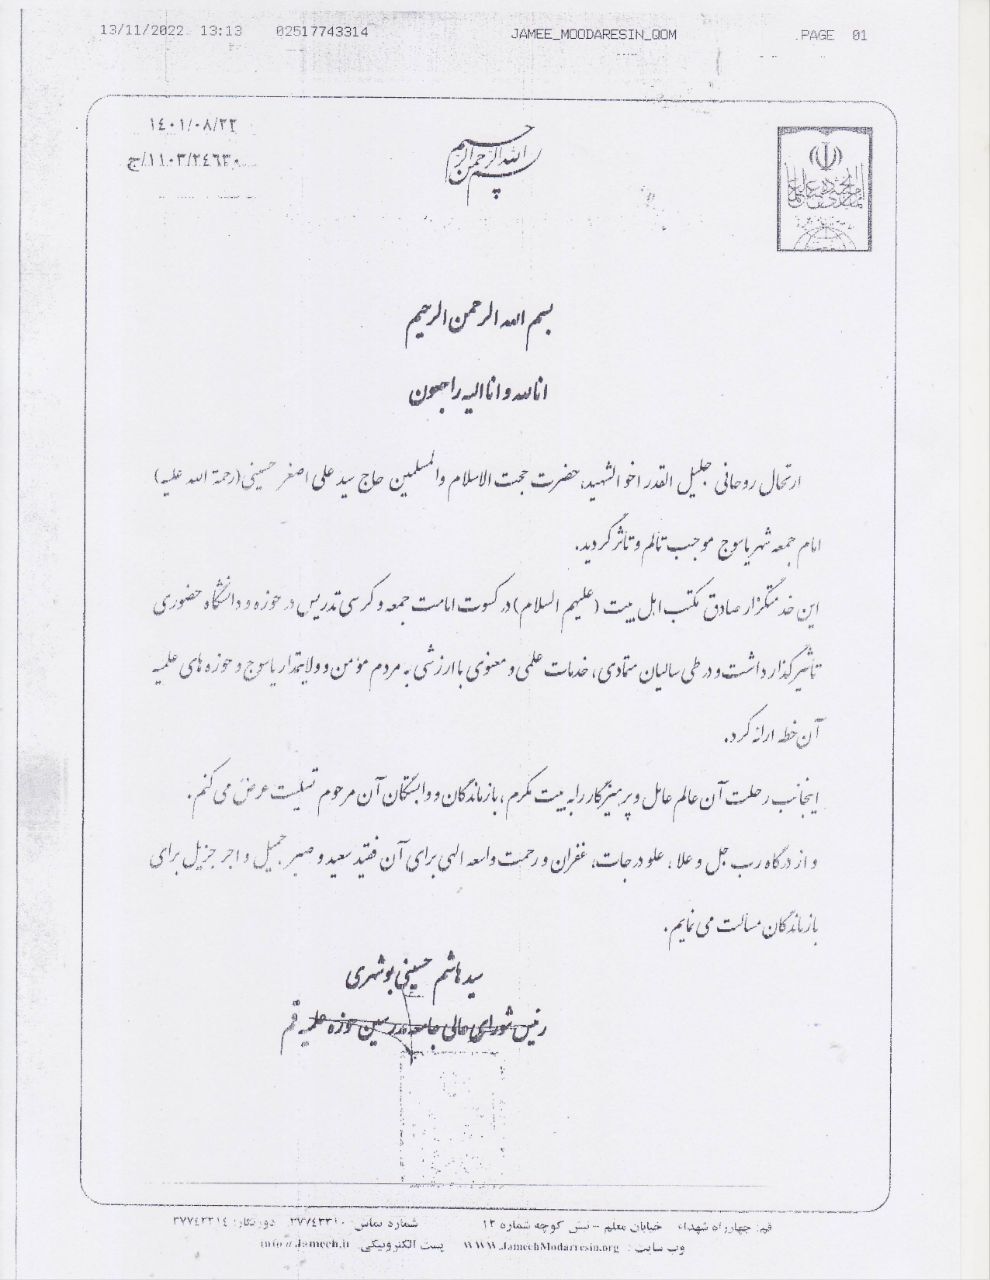 13/11/2022 13:13 02517743314 JAMEE_MOODARESIN_QOM PAGE 01
۱۴۰۱/۰۸/۲۲
۱۱۰۳/۲۴۶۳۰/ج
بسم الله الرحمن الرحیم
بسم الله الرحمن الرحیم
انا لله و انا الیه راجعون
ارتحال روحانی جلیل القدر اخو الشهید، حضرت حجت الاسلام والمسلمین حاج سید علی اصغر حسینی (رحمة الله علیه)
امام جمعه شهر یاسوج موجب تالم و تاثر گردید.
این خدمتگزار صادق مکتب اهل بیت (علیهم السلام) در کسوت امامت جمعه و کرسی تدریس در حوزه و دانشگاه حضوری
تأثیرگذار داشت و در طی سالیان متمادی، خدمات علمی و معنوی با ارزشی به مردم مؤمن و ولایتمدار یاسوج و حوزه های علمیه
آن خطه ارائه کرد.
اینجانب رحلت آن عالم عامل و پرهیزگار را به بیت مکرم، بازماندگان و وابستگان آن مرحوم تسلیت عرض می کنم.
و از درگاه رب جل و علا، علو درجات، غفران و رحمت واسعه الهی برای آن فقید سعید و صبر جمیل و اجر جزیل برای
بازماندگان مسألت می نمایم.
سید هاشم حسینی بوشهری
رئیس شورای عالی جامعه مدرسین حوزه علمیه قم
قم: چهارراه شهداء خیابان معلم - نبش کوچه شماره ۱۲ شماره تماس: ۳۷۷۴۳۳۱۰ دورنگار: ۳۷۷۴۳۳۱۴
وب سایت: WWW.JameehModarresin.org پست الکترونیکی: info@Jameeh.ir